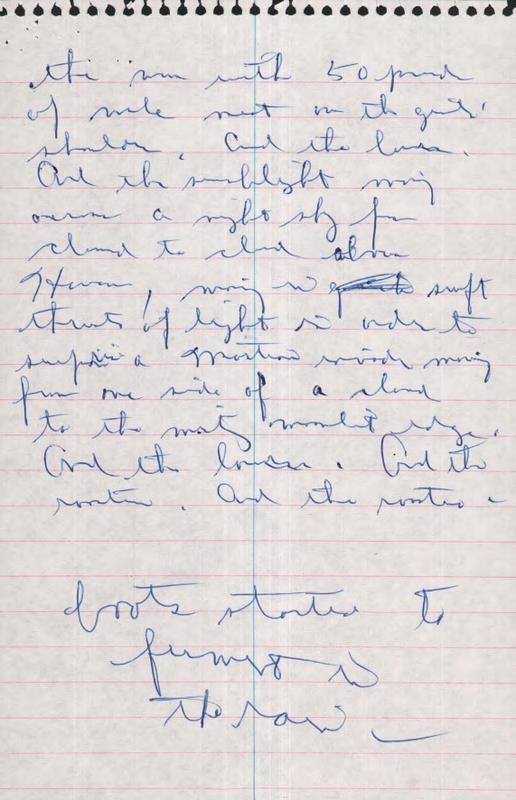 the man with 50 pound
of mule meat on the guide'
shoulder. And the
And the searchlight moving
across a night sky from
cloud to cloud above
Havana, moving in swift
thrusts of light in order to
surprise a Martian invader moving
from one side of a cloud
to the misty moonlit edge.
And the . And the
rooster. And the rooster -
boots started to
ferment in
the rain